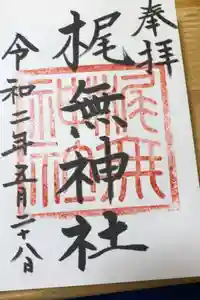 奉拝
梶無神社
令和二年五月二十八日